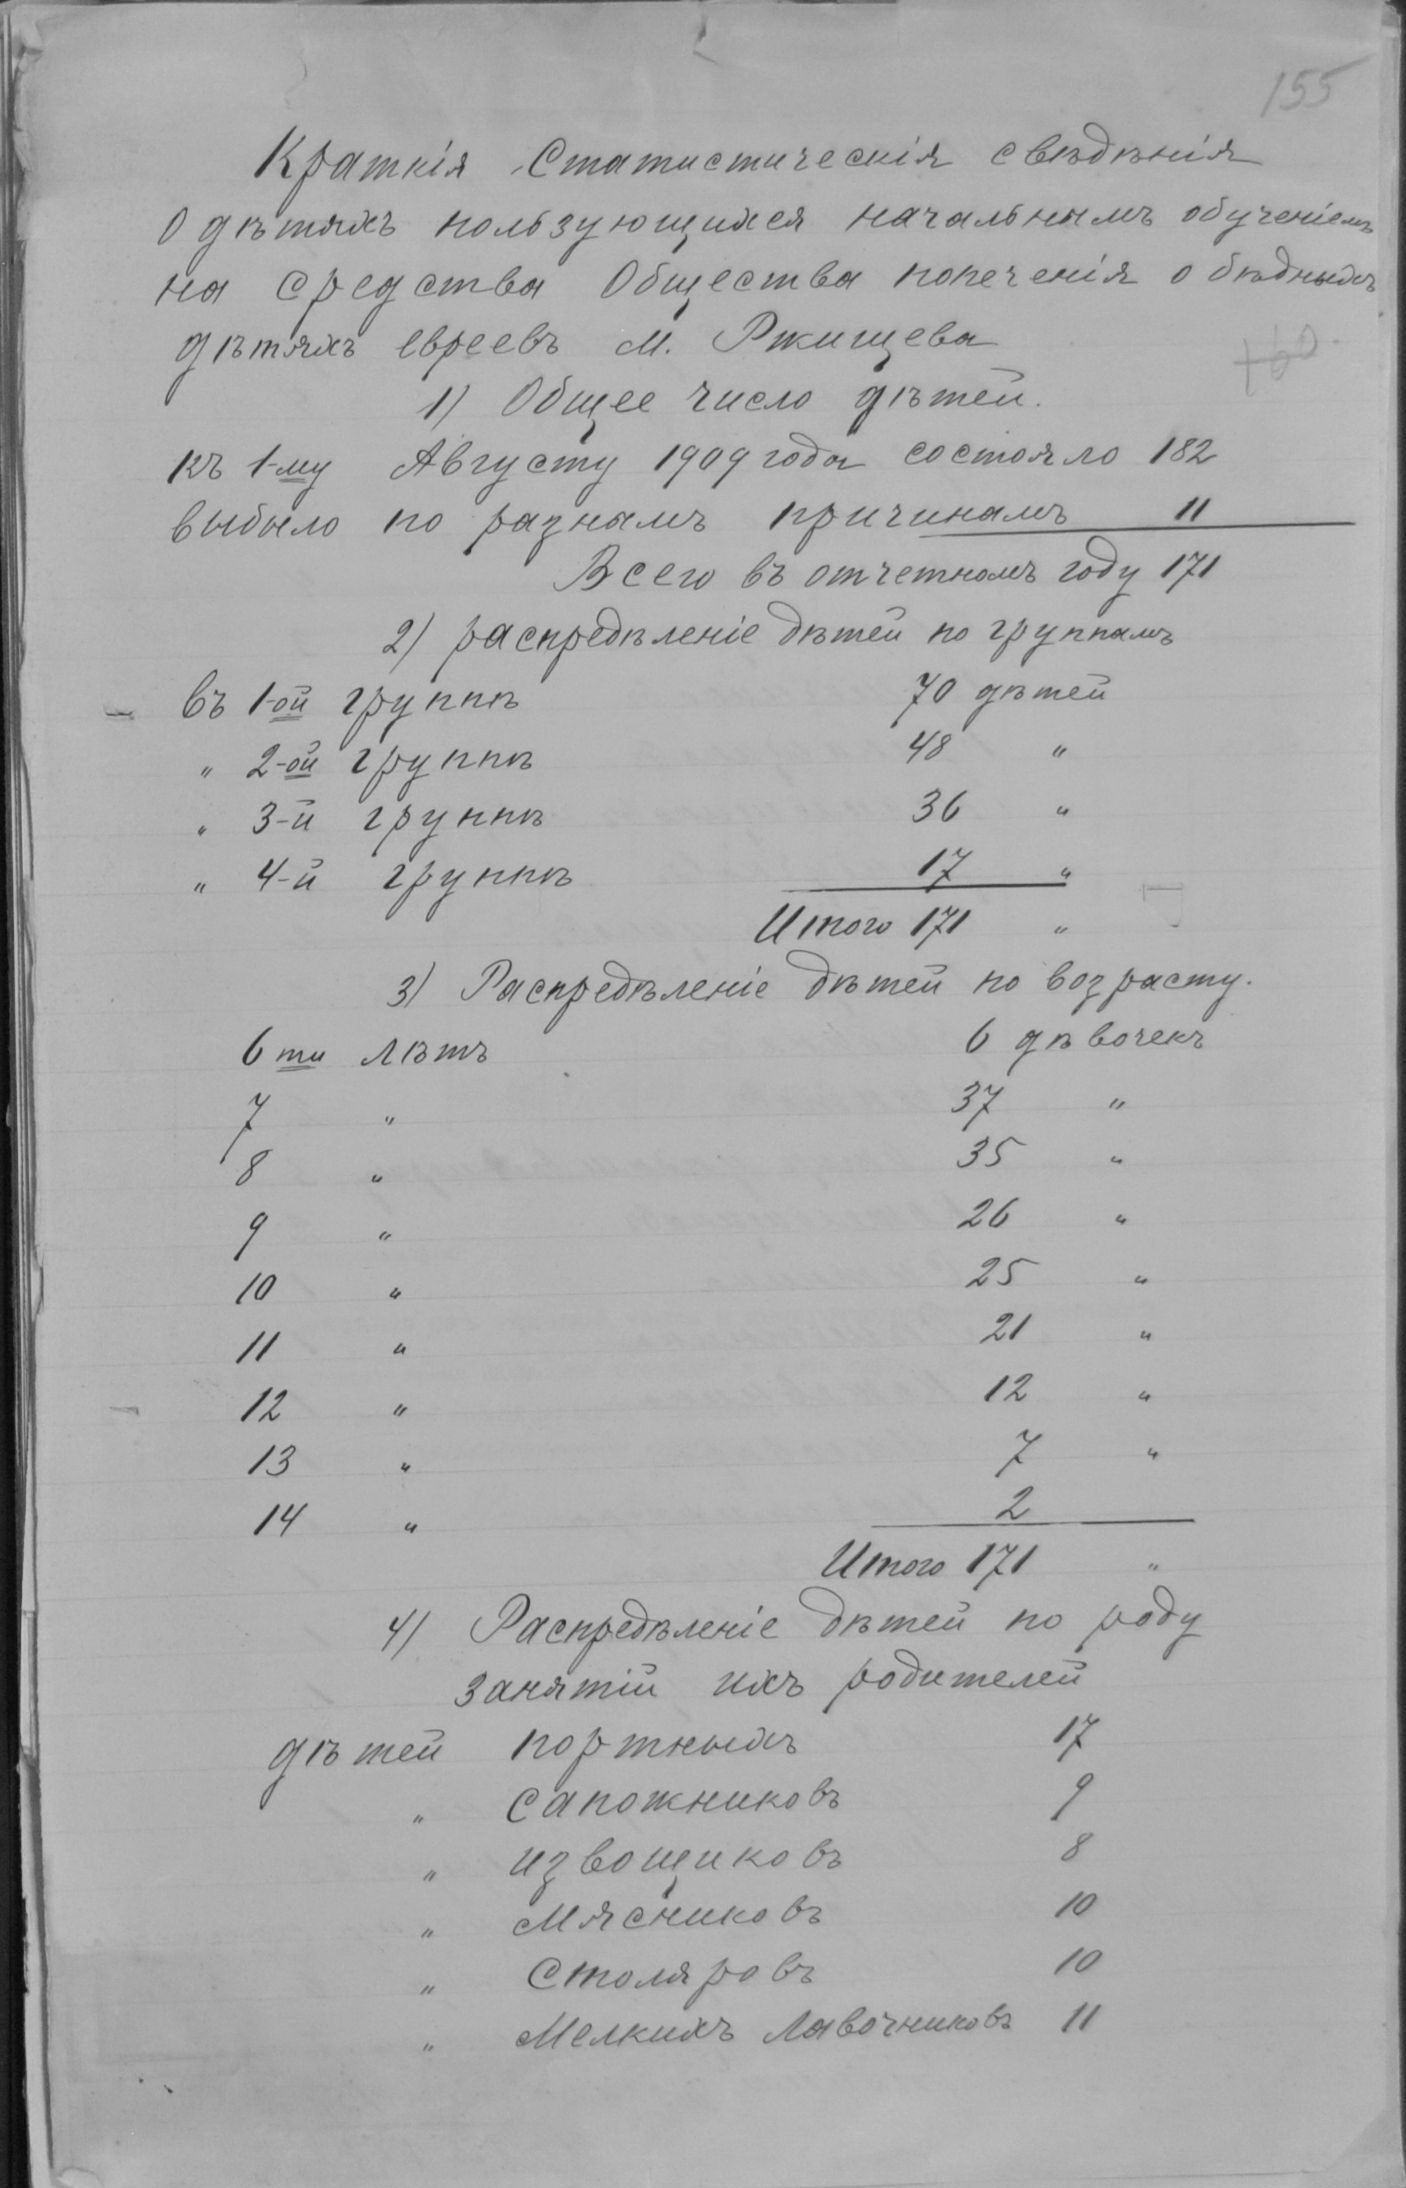 155
Краткія Статистическія свѣдѣнія
О дѣтяхъ пользующихся начальнымъ обученіемъ
на средства Общества попеченія о бѣдныхъ
дѣтяхъ евреевъ м. Ржищева
1) Общее число дѣтей.
къ 1-му Августу 1909 года состояло 182
выбыло по разнымъ причинамъ 11
Всего въ отчетномъ году 171
2) распредѣленіе дѣтей по группамъ
въ 1-ой группѣ 70 дѣтей
" 2-ой группѣ 48 "
" 3-й группѣ 36 "
" 4-й группѣ 17 "
Итого 171 "
3) Распредѣленіе дѣтей по возрасту.
6 ти лѣтъ 6 дѣвочекъ
7 " 37 "
8 " 35 "
9 " 26 "
10 " 25 "
11 " 21 "
12 " 12 "
13 " 7 "
14 " 2
Итого 171 "
4) Распредѣленіе дѣтей по роду
занятій ихъ родителей
дѣтей портныхъ 17
" сапожниковъ 9
" извощиковъ 8
" Мясниковъ 10
" Столяровъ 10
" Мелкихъ Лавочниковъ 11